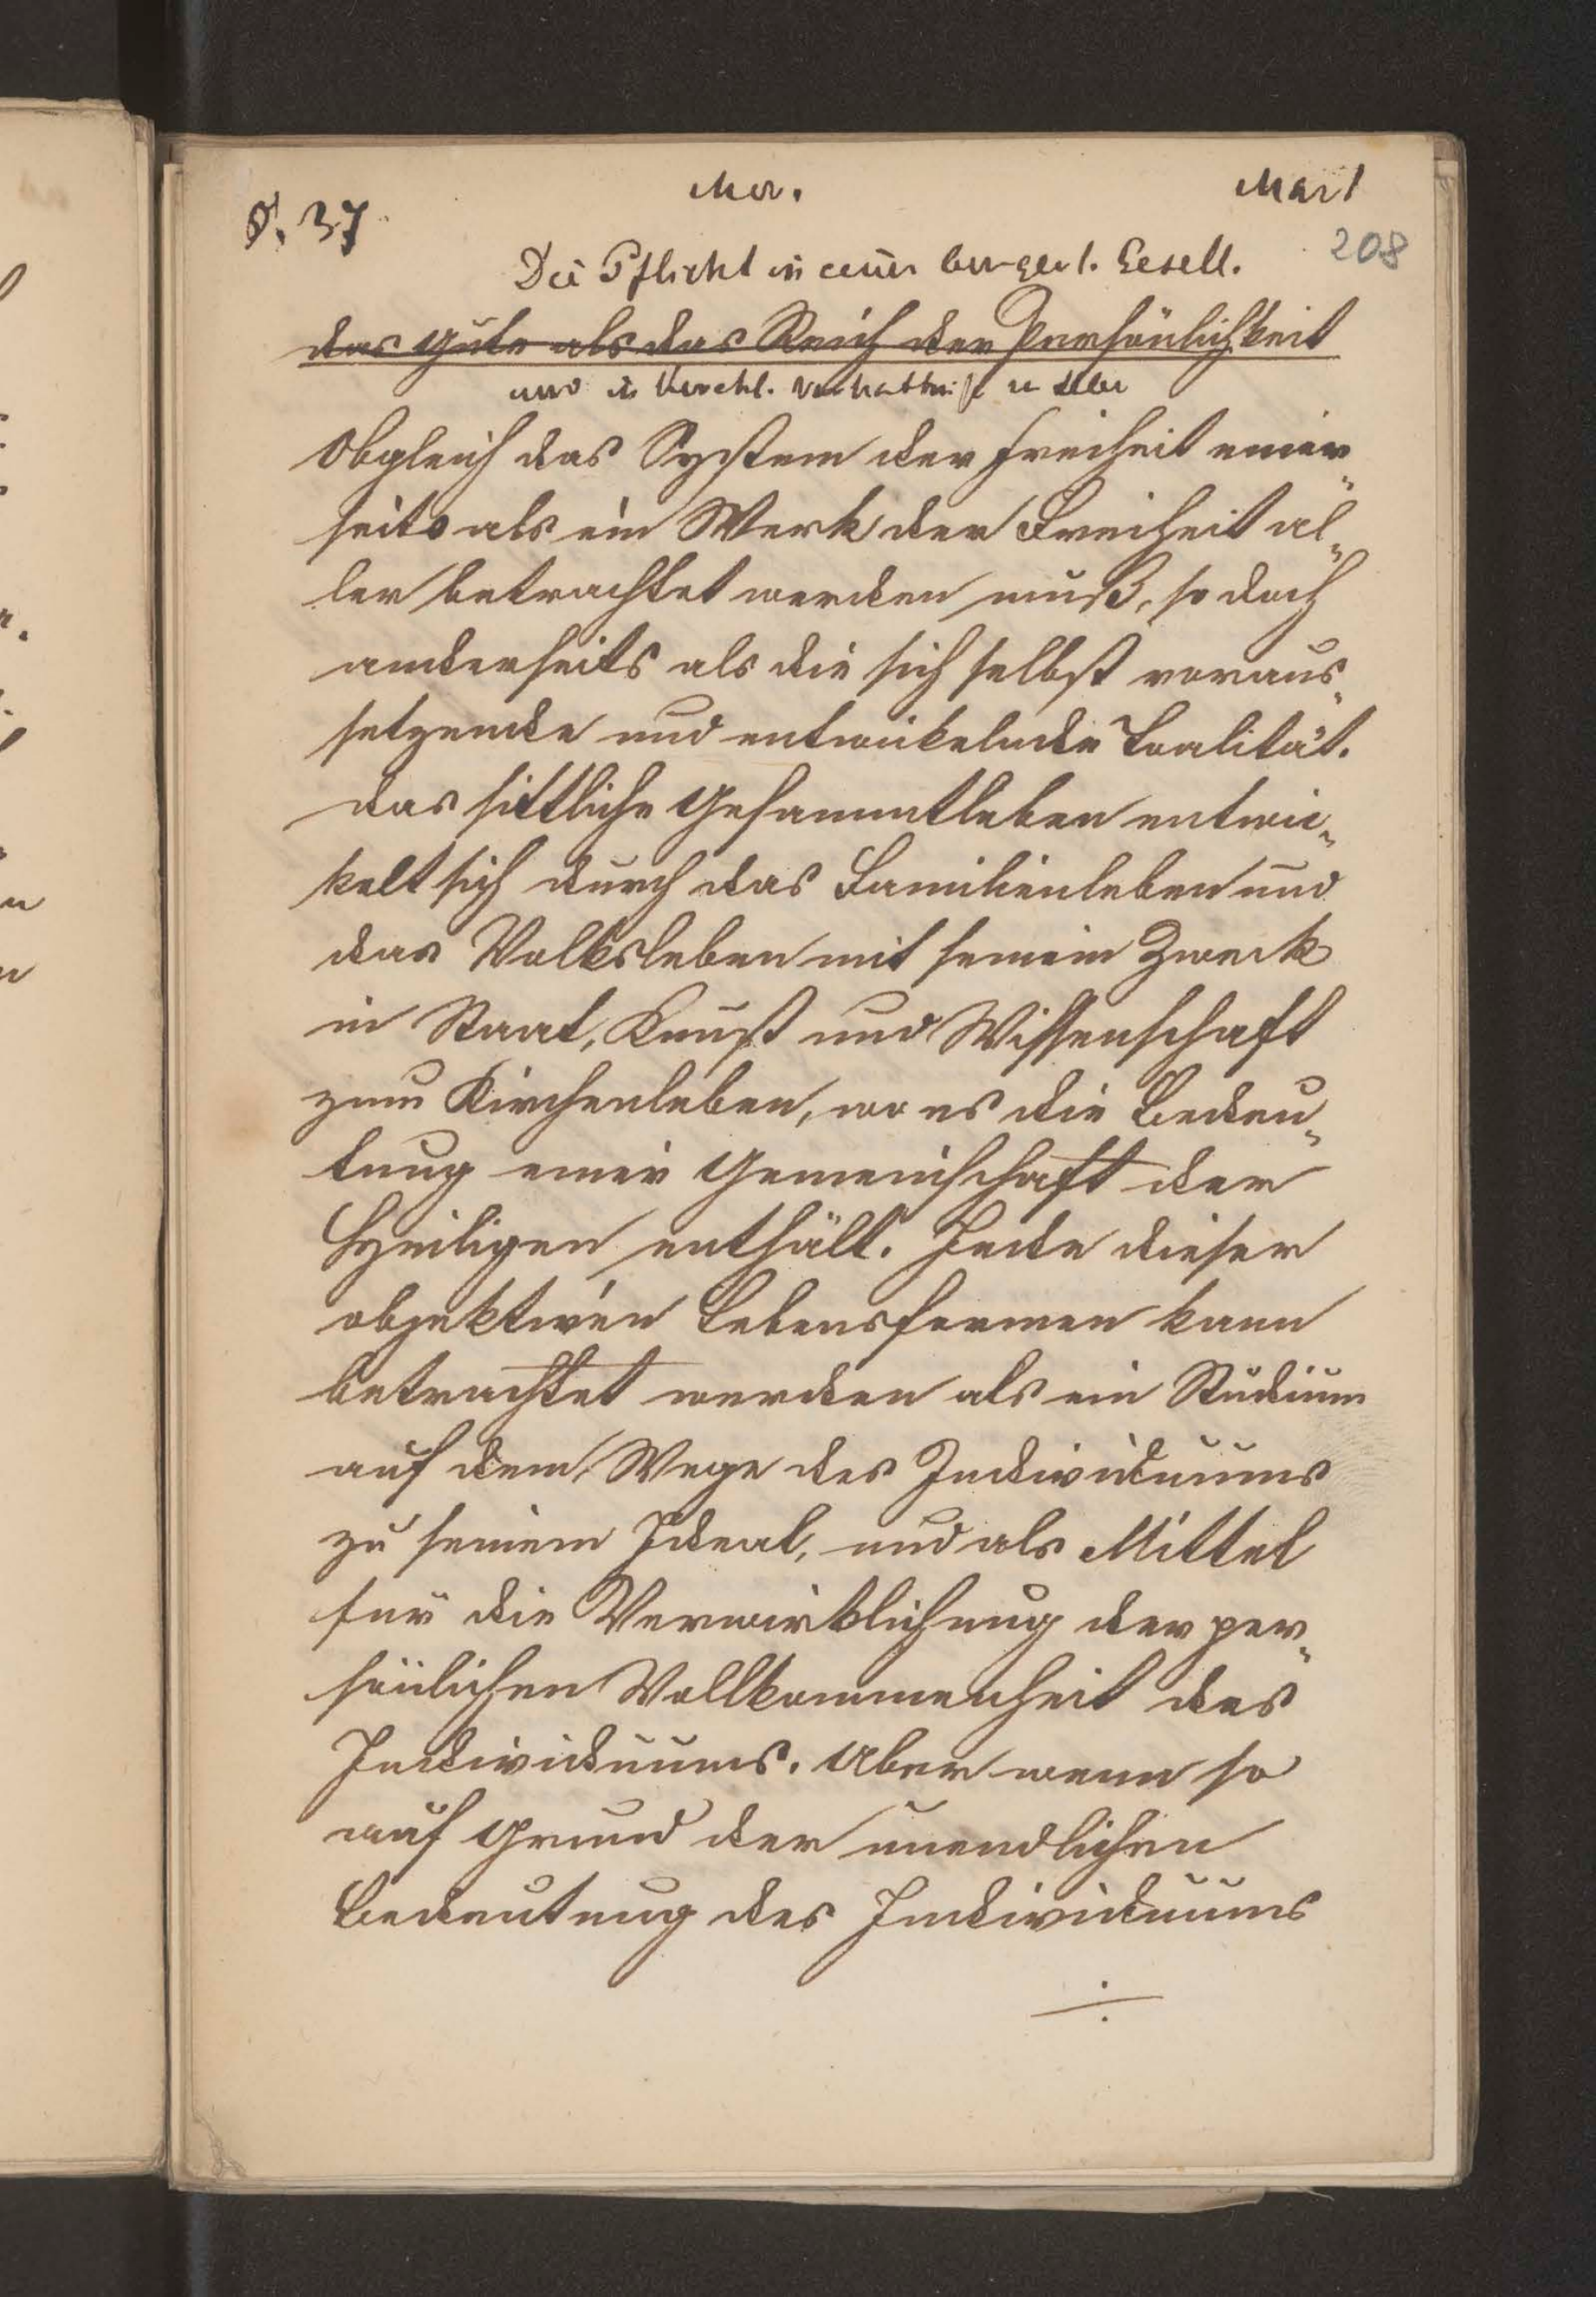 Mor.
Mart
§. 37
208
Die Pflicht in einer burgerl. Gesell.
das Gute als das Reich der Persönlichkeit
und in Kirchl. in
Obgleich das System der Freiheit einer„
seits als ein Werk der Freiheit al„
ler betrachtet werden muß, so doch
anderseits als die sich selbst voraus„
setzende und entwickelnde
das sittliche Gesammtleben entwi„
kelt sich durch das Familienleben und
das Volksleben mit seinem Zweck
in Staat, Kunst und Wissenschaft
zum Kirchenleben, wo es die Bedeu„
tung einer Gemeinschaft der
Heiligen enthält. Jede dieser
objektiven Lebensformen kann
betrachtet werden als ein Stadium
auf dem Wege des Individuums
zu seinem Ideal, und als Mittel
für die Verwirklichung der per„
sönlichen Vollkommenheit des
Individuums. Aber wenn so
auf Grund der unendlichen
Bedeutung des Individuums